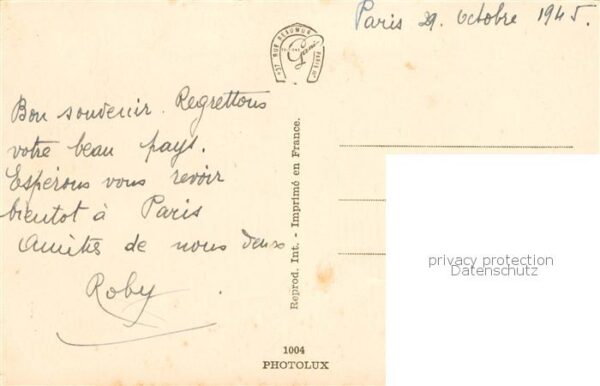 Paris 29. Octobre 1945.
57 RUE REAUMUR PARIS
Bon souvenir. Regrettons
votre beau pays.
Espérons vous revoir
bientot à Paris
Amitiés de nous deux
Roby
Reprod. Int. - Imprimé en France.
1004
PHOTOLUX
privacy protection
Datenschutz